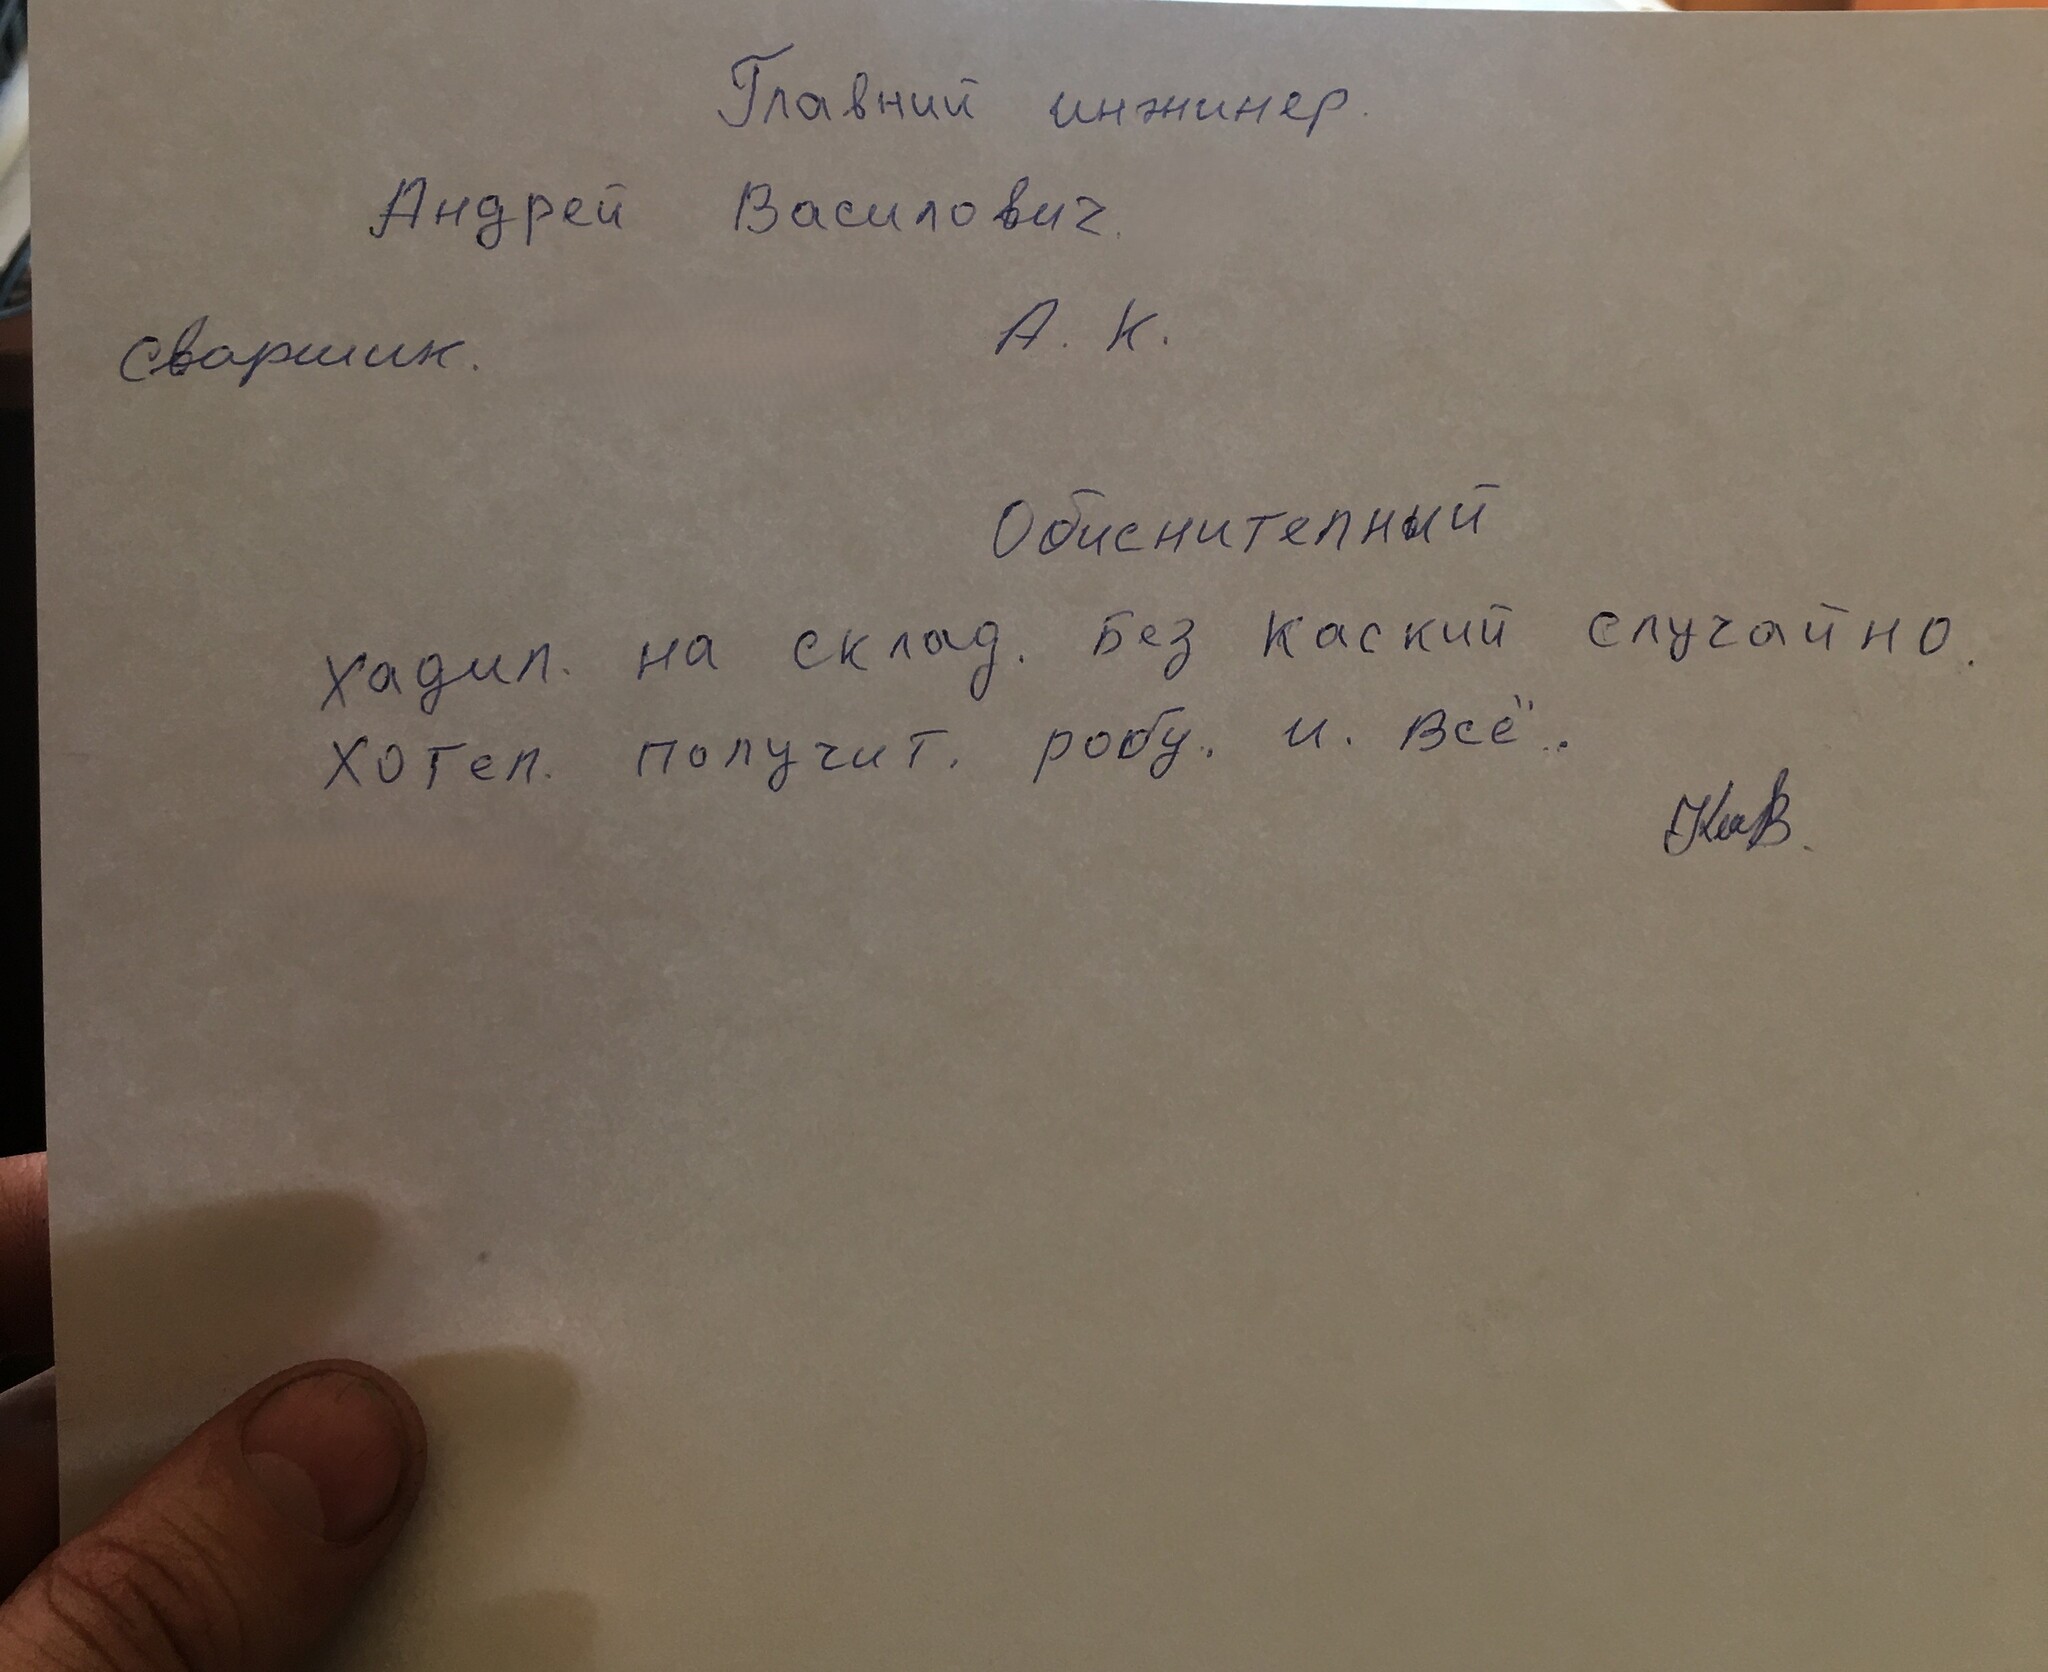 Главний инжинер.
Андрей Василович.
Сваршик. А. К.
Обиснителный
Хадил. на склад. Без каский случайно.
Хотел. получит. робу. и. всё.